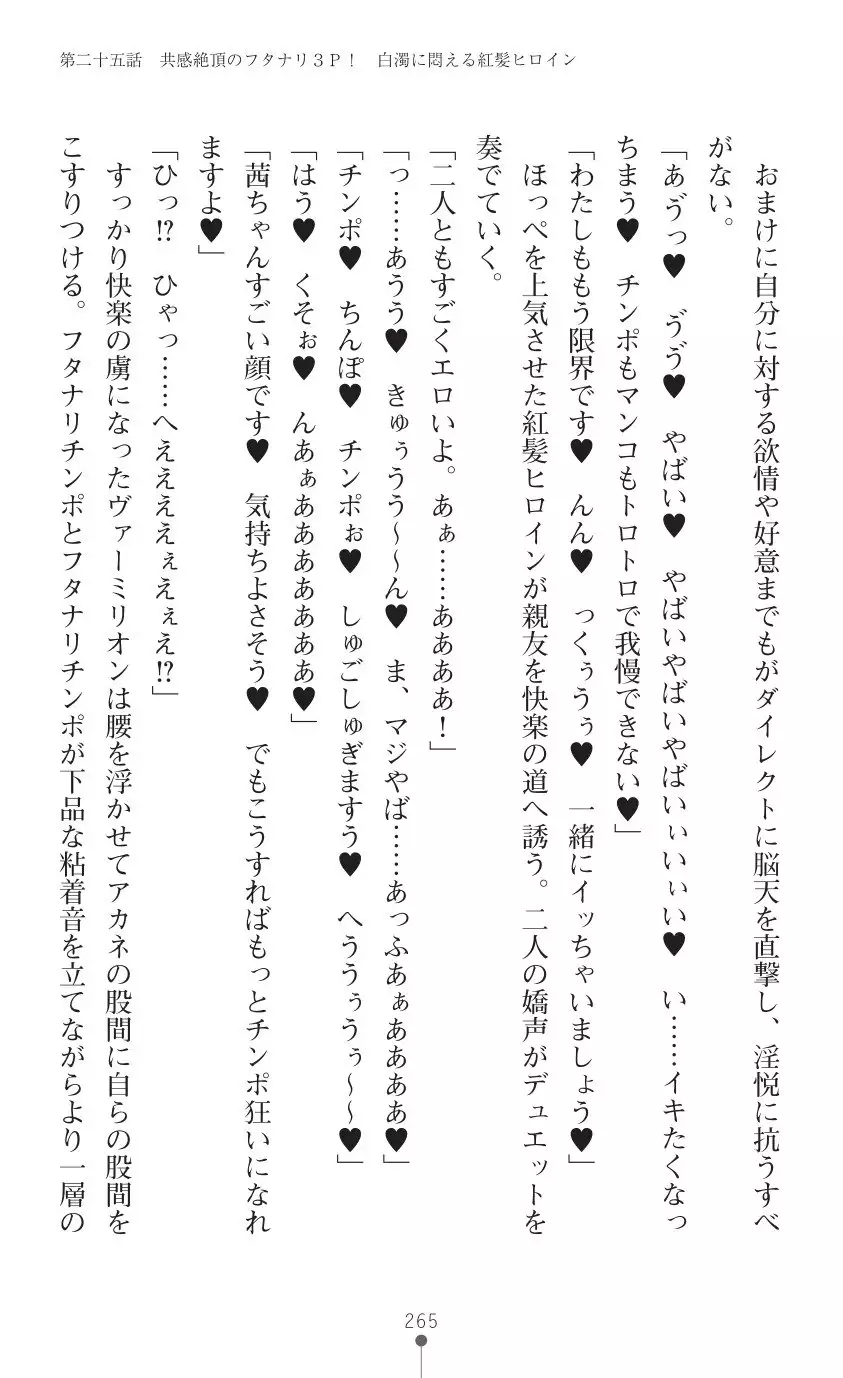 第二十五話　共感絶頂のフタナリ３Ｐ！　白濁に悶える紅髪ヒロイン
　おまけに自分に対する欲情や好意までもがダイレクトに脳天を直撃し、淫悦に抗うすべ
がない。
「あ゛っ♥　ゔゔ♥　やばい♥　やばいやばいやばいぃいぃい♥　い……イキたくなっ
ちまう♥　チンポもマンコもトロトロで我慢できない♥」
「わたしももう限界です♥　んん♥　っくぅうぅ♥　一緒にイッちゃいましょう♥」
　ほっぺを上気させた紅髪ヒロインが親友を快楽の道へ誘う。二人の嬌声がデュエットを
奏でていく。
「二人ともすごくエロいよ。あぁ……ああああ！」
「っ……あうう♥　きゅぅうう～～ん♥　ま、マジやば……あっふあぁああああ♥」
「チンポ♥　ちんぽ♥　チンポぉ♥　しゅごしゅぎますう♥　へううぅうぅ～～♥」
「はう♥　くそぉ♥　んあぁああああああああ♥」
「茜ちゃんすごい顔です♥　気持ちよさそう♥　でもこうすればもっとチンポ狂いになれ
ますよ♥」
「ひっ!?　ひゃっ……へええええぇえぇえ!?」
　すっかり快楽の虜になったヴァーミリオンは腰を浮かせてアカネの股間に自らの股間を
こすりつける。フタナリチンポとフタナリチンポが下品な粘着音を立てながらより一層の
265